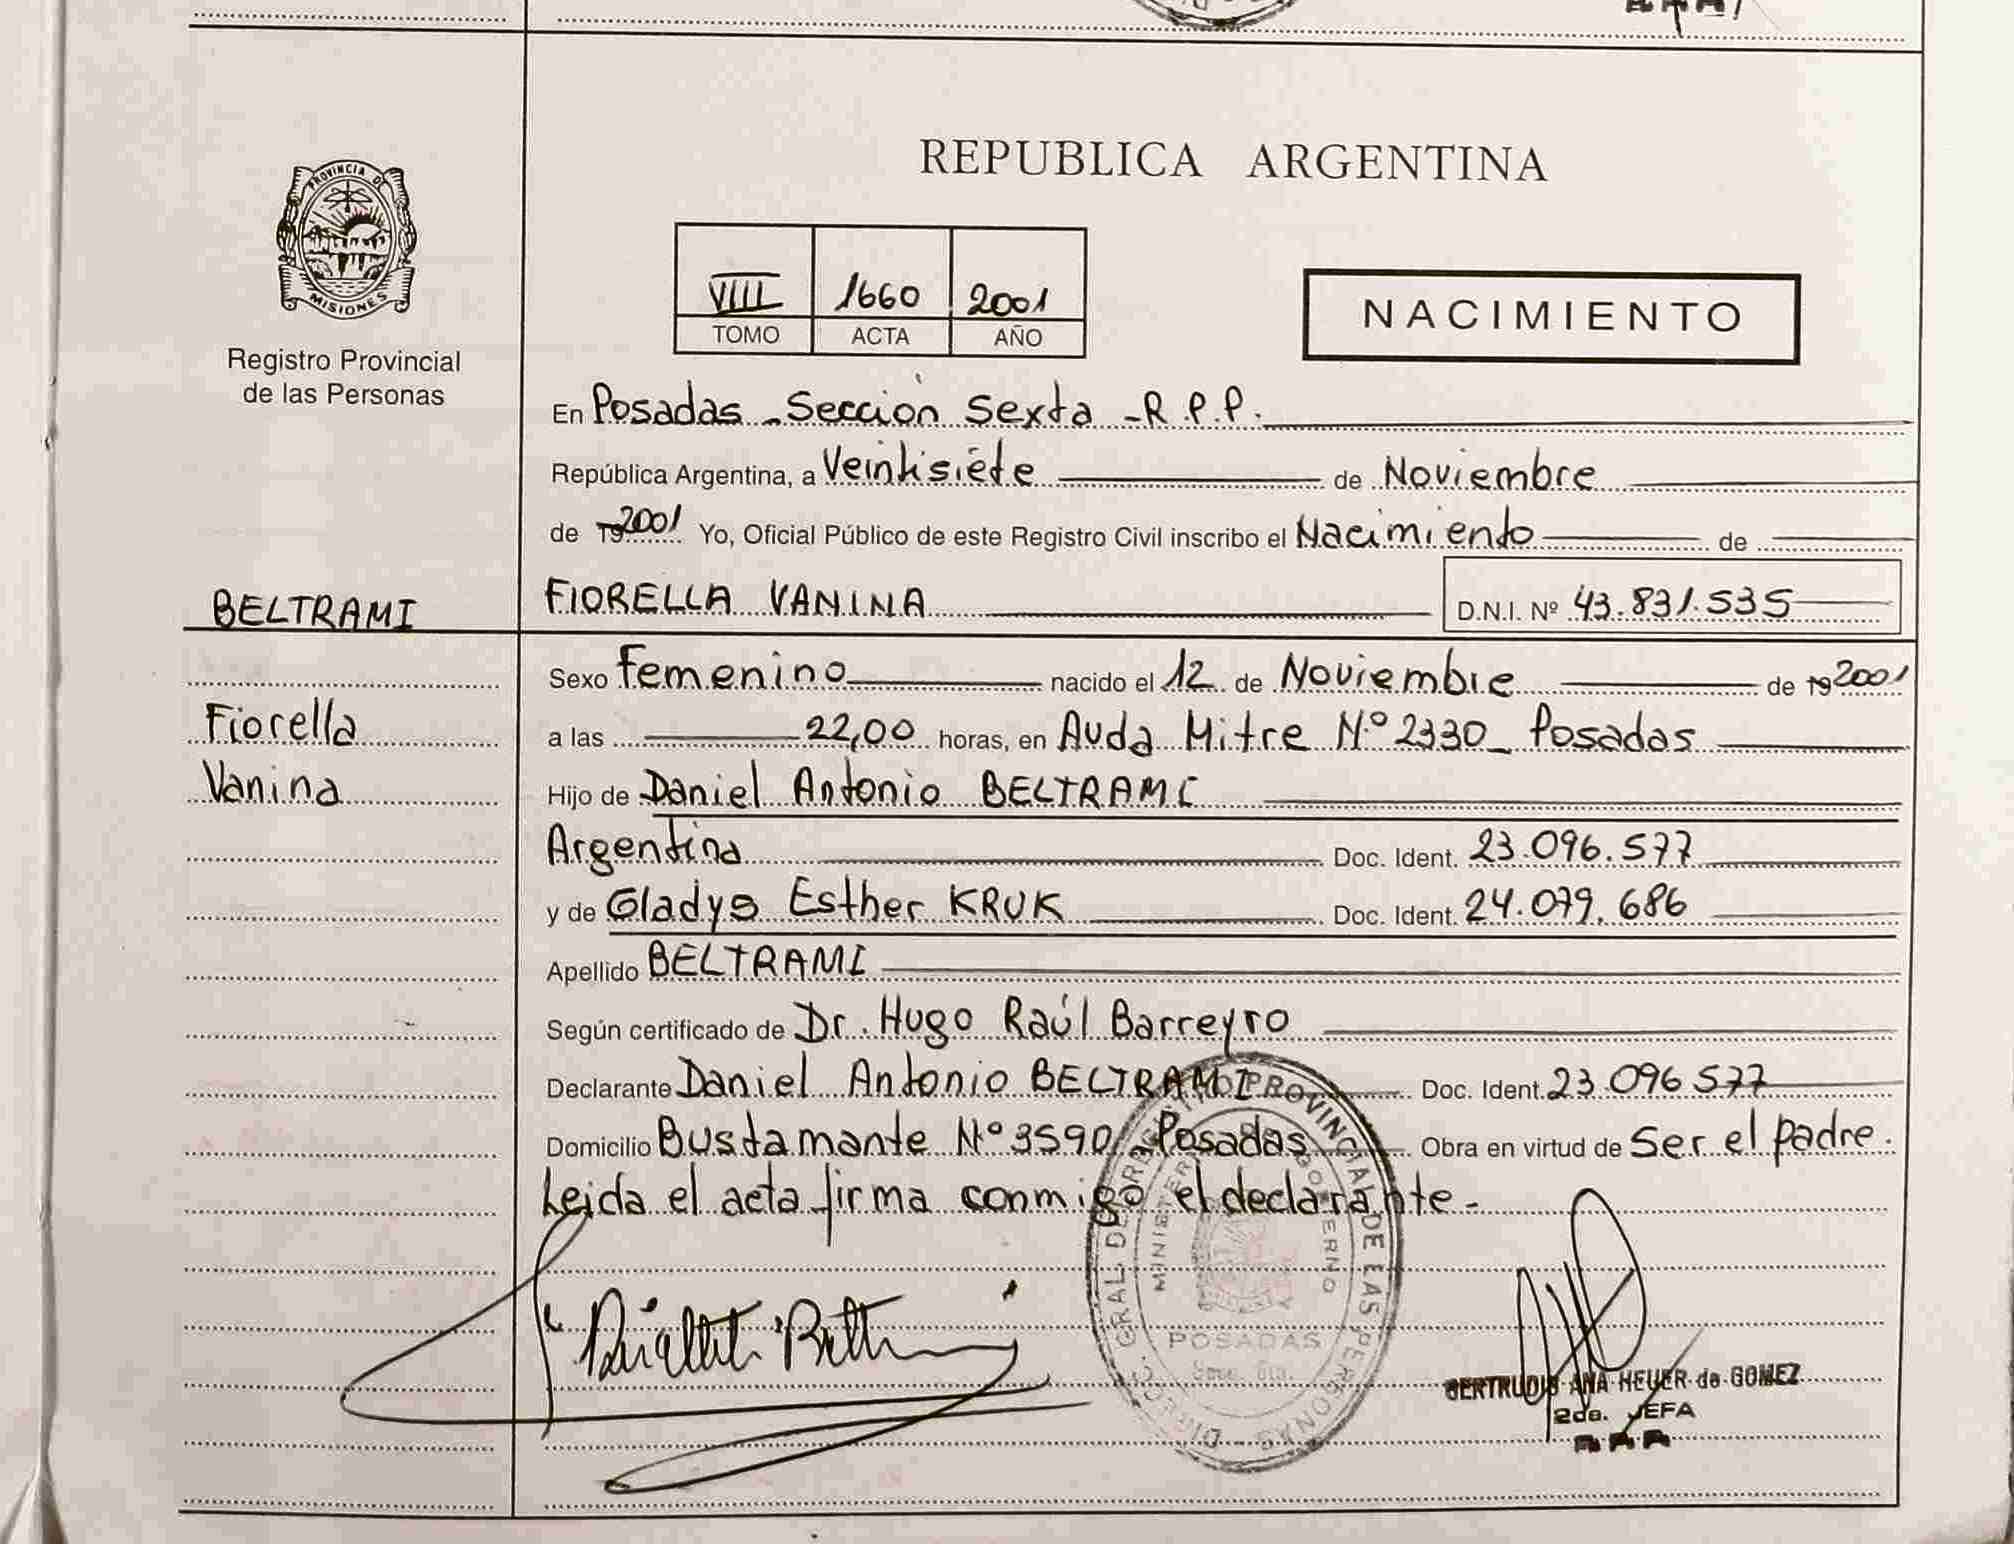 PROVINCIA DE
MISIONES
Registro Provincial
de las Personas
REPUBLICA ARGENTINA
VIII 1660 2001
TOMO ACTA AÑO
NACIMIENTO
En Posadas - Sección Sexta - R.P.P.
República Argentina, a Veintisiete de Noviembre
de 192001 Yo, Oficial Público de este Registro Civil inscribo el Nacimiento de
BELTRAMI
FIORELLA VANINA D.N.I. Nº 43.831.535
Sexo Femenino nacido el 12 de Noviembre de 192001
Fiorella
a las 22,00 horas, en Avda Mitre Nº 2330 - Posadas
Vanina
Hijo de Daniel Antonio BELTRAMI
Argentina Doc. Ident. 23.096.577
y de Gladys Esther KRUK Doc. Ident. 24.079.686
Apellido BELTRAMI
Según certificado de Dr. Hugo Raúl Barreyro
Declarante Daniel Antonio BELTRAMI Doc. Ident. 23.096577
Domicilio Bustamante Nº 3590 Posadas Obra en virtud de Ser el padre.
Leida el acta firma conmigo el declarante -
DIRECC. GRAL. DE REGISTRO PROVINCIAL DE LAS PERSONAS
MINISTERIO GOBIERNO
POSADAS
Secc. 6ta.
GERTRUDIS ANA HEUER de GOMEZ
2da. JEFA